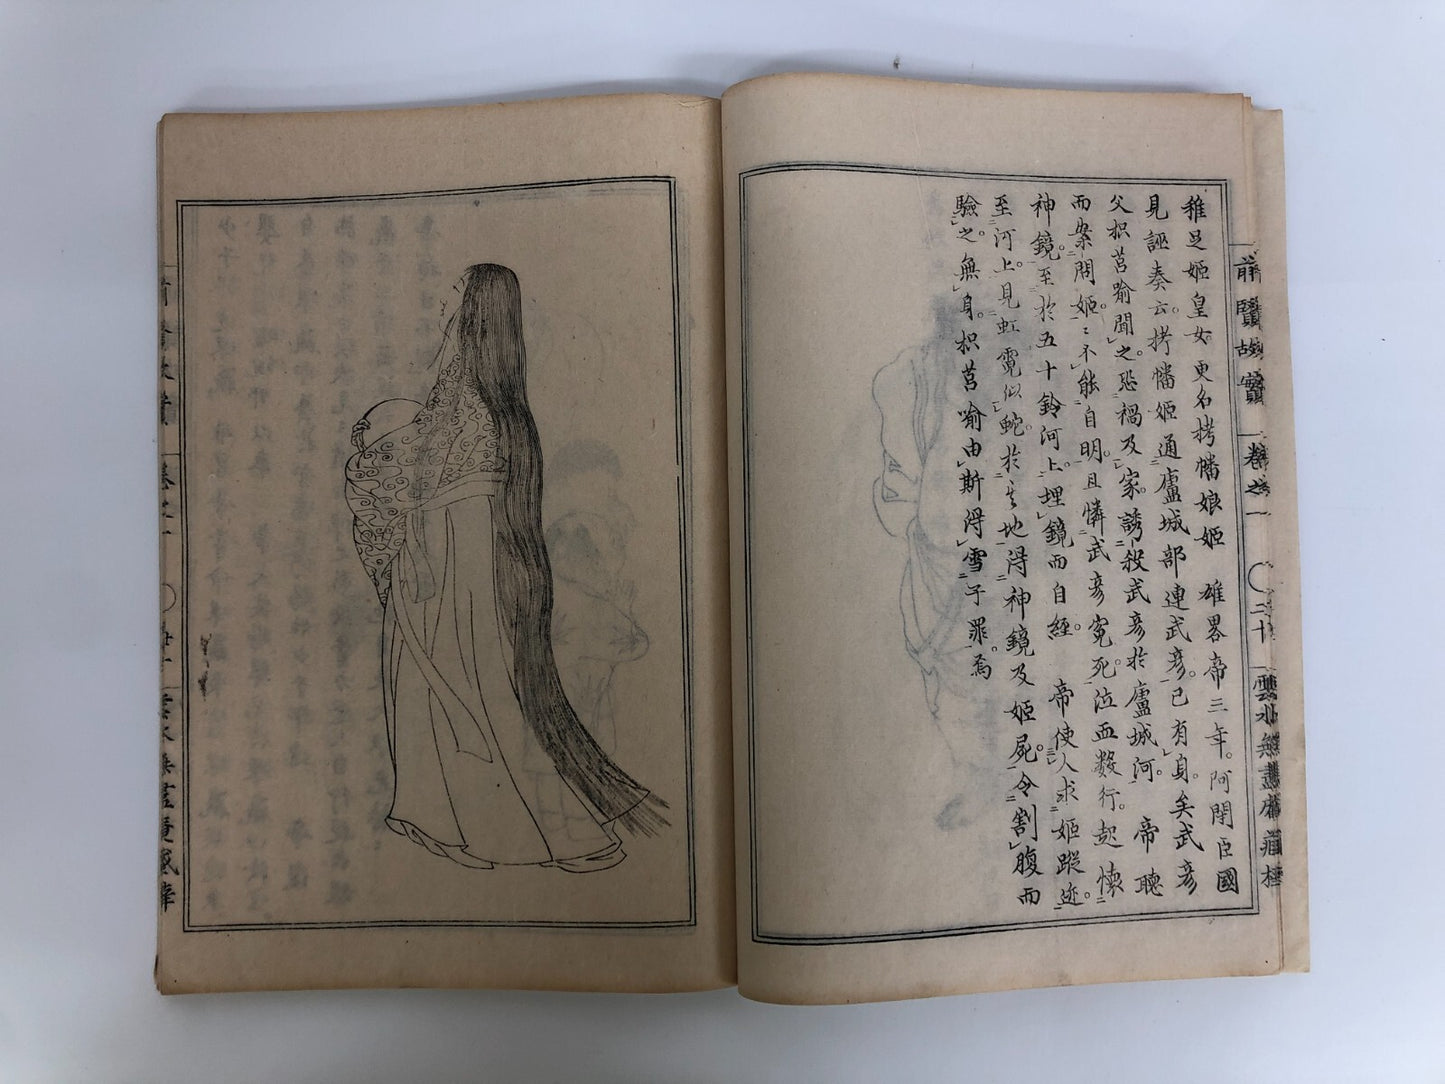 稚足姫皇女更名栲幡娘姫 雄畧帝三年。阿閉臣國
見誣奏云。栲幡姫通廬城部連武彦。已有身。矣武彦
父枳莒喩聞之。恐禍及家。誘殺武彦於廬城河。 帝聴
而案問姫。〻不能自明。且憐武彦寃死。泣血数行。起懐
神鏡。至於五十鈴河上。埋鏡而自経。 帝使人求姫蹤迹。
至河上。見虹霓似蛇於其地得神鏡及姫屍。令割腹而
驗之。無身。枳莒喩由斯得雪子罪焉
前賢故實
卷之一
〇二十
雲水無盡庵藏梓